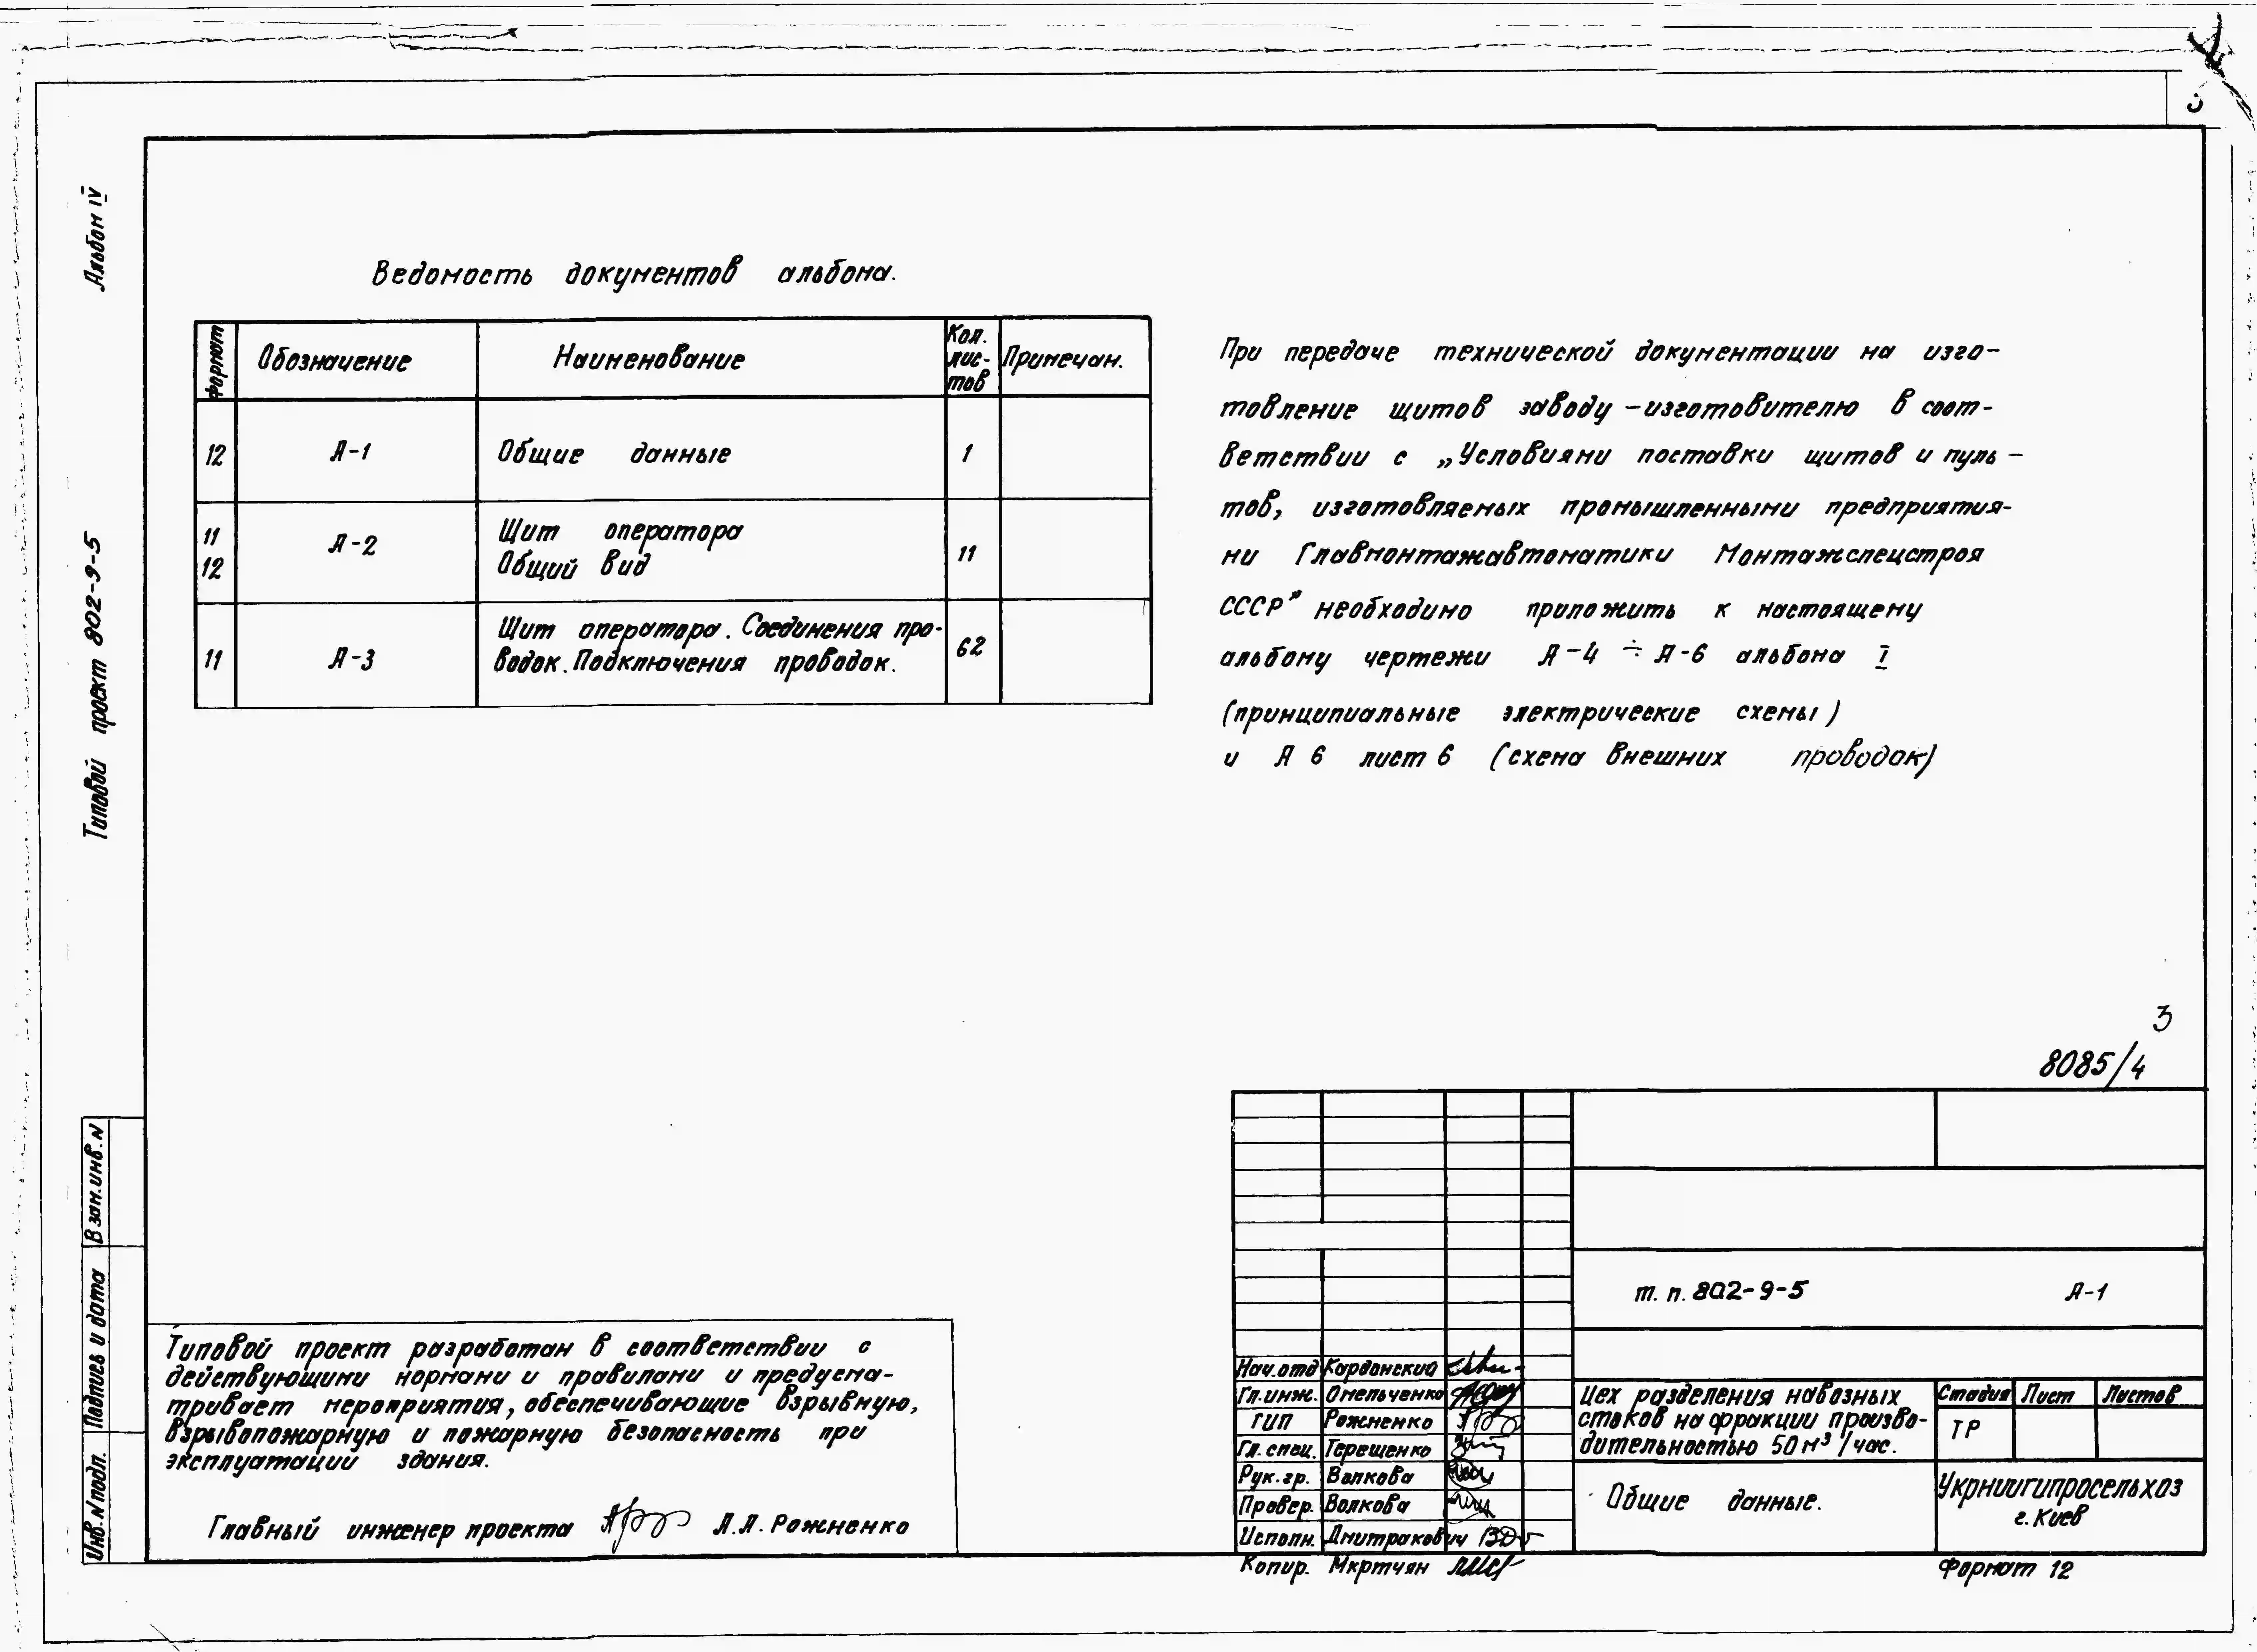 Альбом IV
Типовой проект 802-9-5
Взам. инв. N
Подпись и дата
Инв. N подл.
Ведомость документов альбома.
Формат
Обозначение
Наименование
Кол. лис-
тов
Примечан.
12
А-1
Общие данные
1
11
12
А-2
Щит оператора
Общий вид
11
11
А-3
Щит оператора. Соединения про-
водок. Подключения проводок.
62
При передаче технической документации на изго-
товление щитов заводу -изготовителю в соот-
ветствии с „Условиями поставки щитов и пуль-
тов, изготовляемых промышленными предприятия-
ми Главмонтажавтоматики Монтажспецстроя
СССР" необходимо приложить к настоящему
альбому чертежи А-4 ÷ А-6 альбома I
(принципиальные электрические схемы)
и А 6 лист 6 (схема внешних проводок)
3
8085/4
Типовой проект разработан в соответствии с
действующими нормами и правилами и предусма-
тривает мероприятия, обеспечивающие взрывную,
взрывопожарную и пожарную безопасность при
эксплуатации здания.
Главный инженер проекта А.Л. Рожненко
т. п. 802-9-5 А-1
Нач.отд Кардонский
Гл.инж. Омельченко
ГИП Рожненко
Гл. спец. Терещенко
Рук. гр. Волкова
Провер. Волкова
Исполн. Дмитракович
Копир. Мкртчян
Цех разделения навозных
стоков на фракции произво-
дительностью 50 м³/час.
Стадия Лист Листов
ТР
Общие данные.
Укрниигипросельхоз
г. Киев
Формат 12